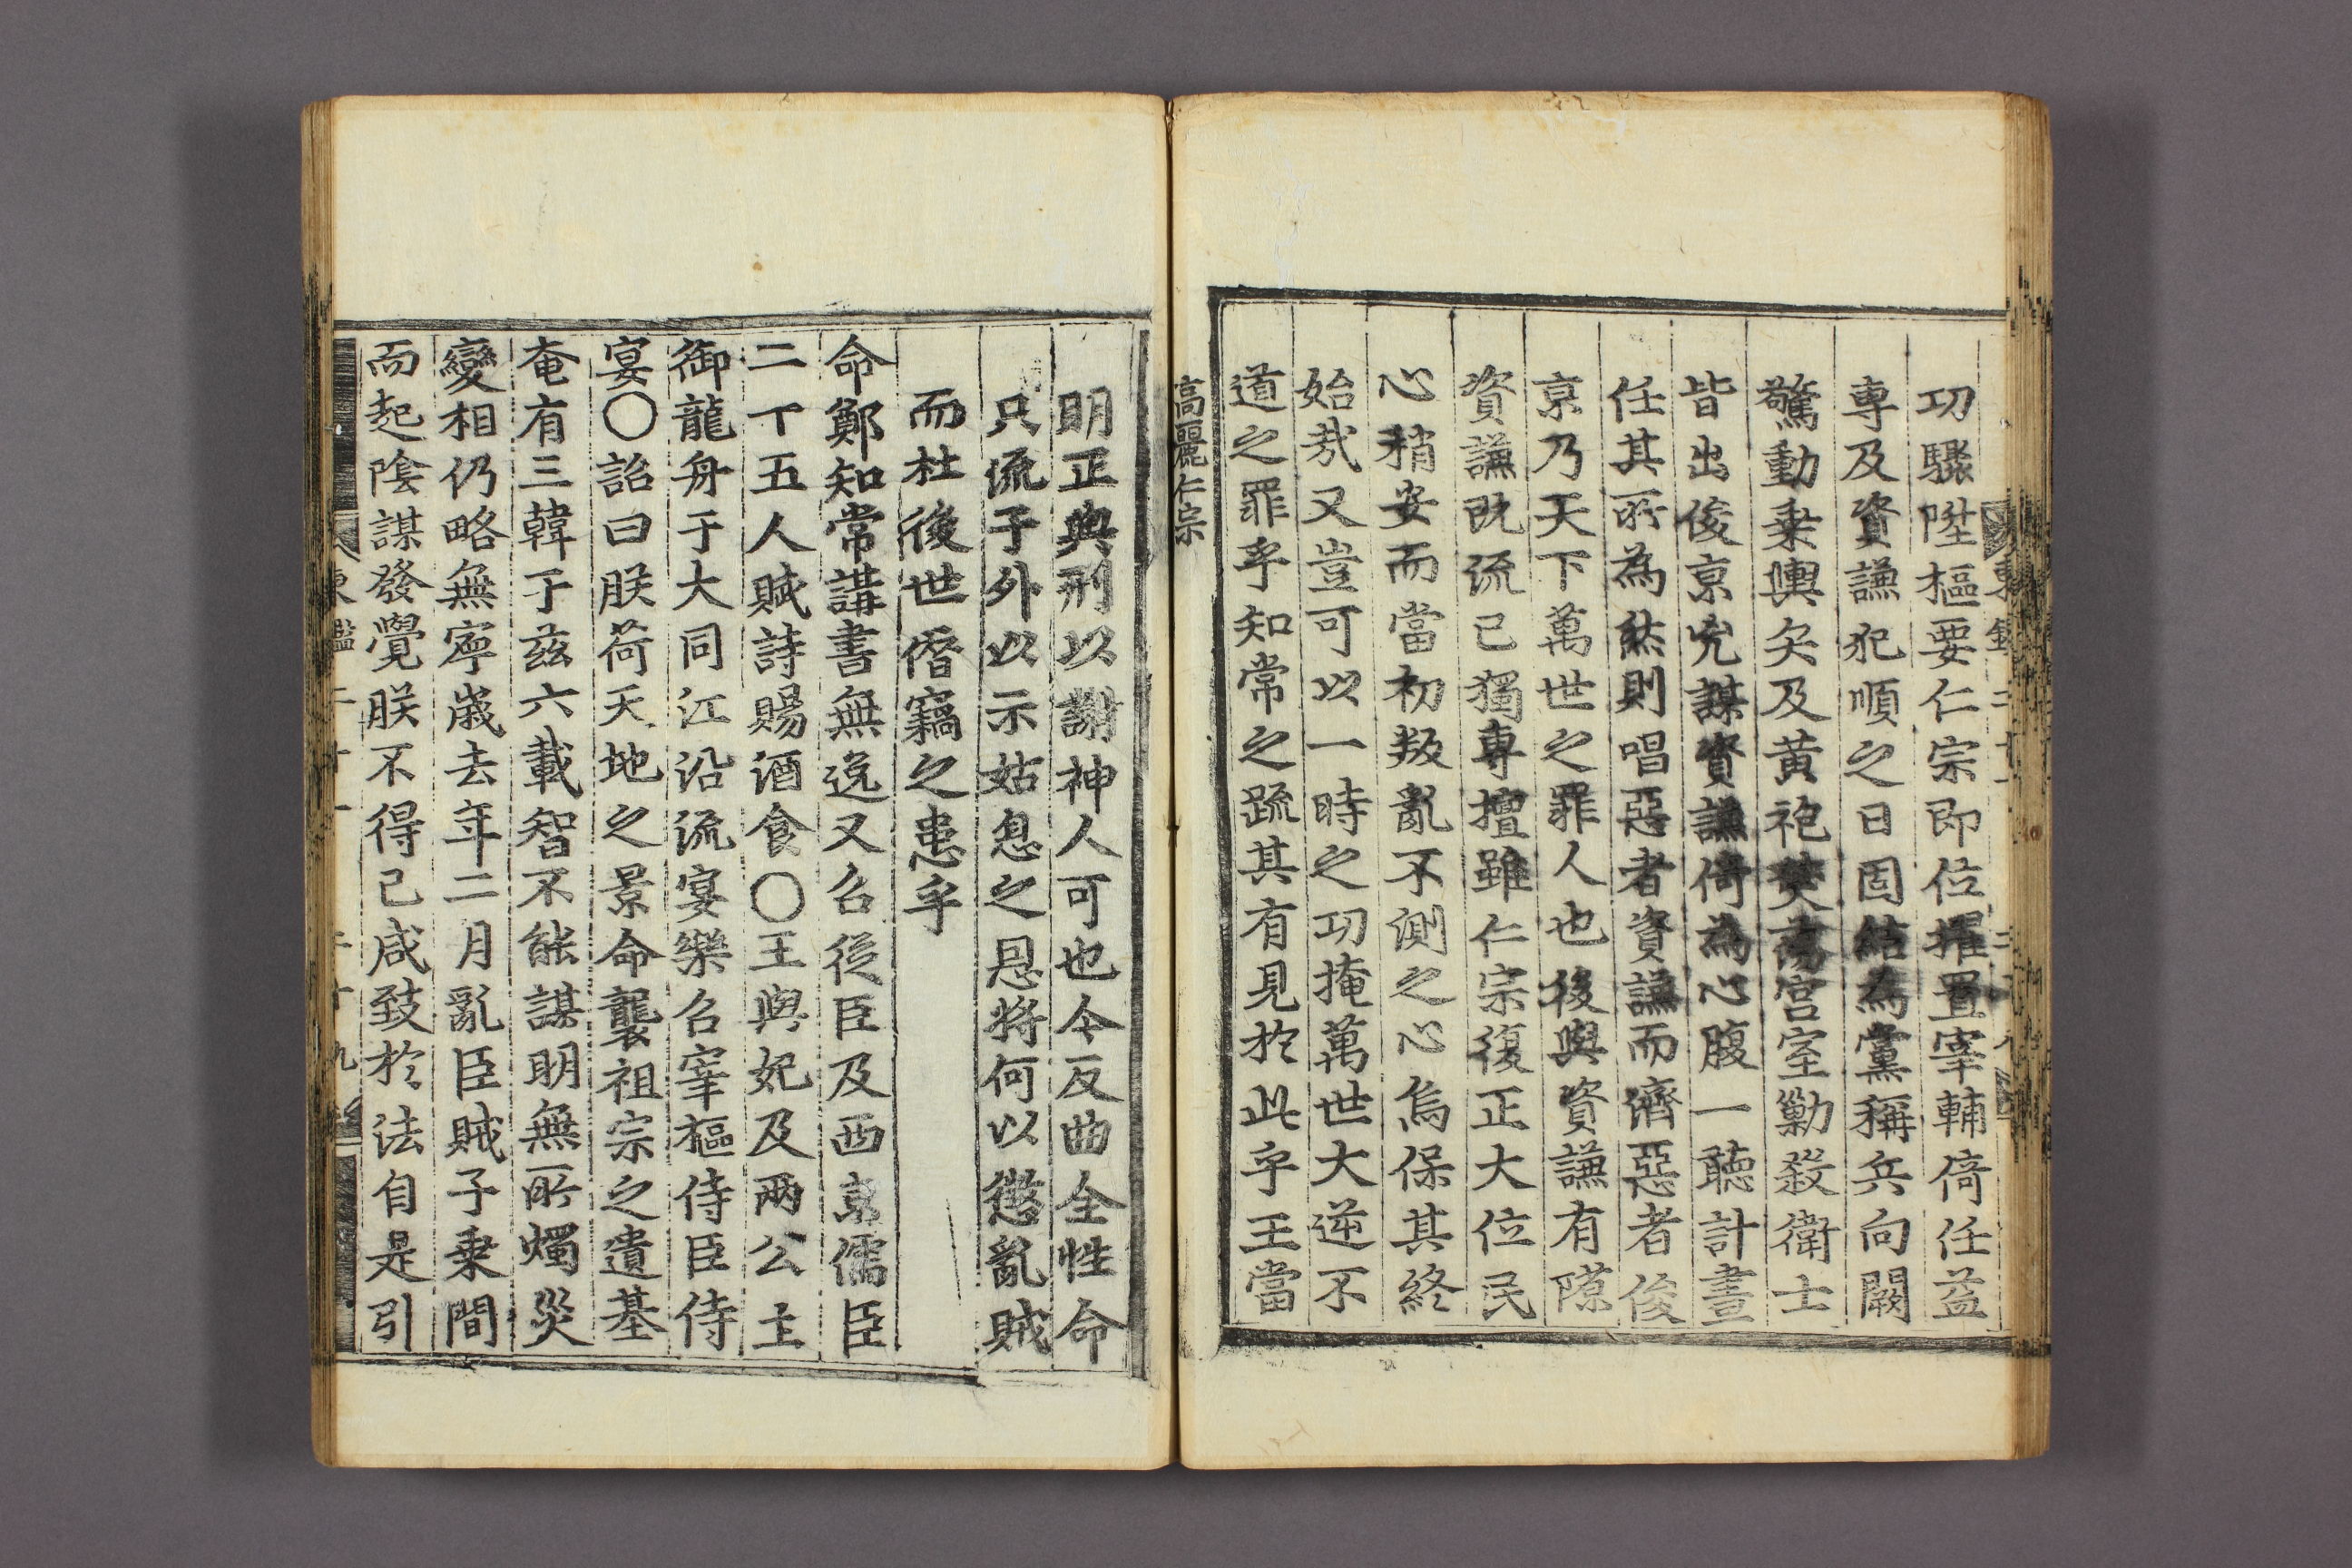 功驟陞樞要仁宗即位擢置宰輔倚任益
專及資謙犯順之日固結為黨稱兵向闕
驚動乗輿矢及黃袍焚蕩宮室勦殺衛士
皆出俊京兇謀資謙倚為心腹一聽計畫
任其所為然則唱惡者資謙而濟惡者俊
京乃天下萬世之罪人也後與資謙有隙
資謙旣流已獨專擅雖仁宗復正大位民
心稍安而當初叛亂不測之心烏保其終
始哉又豈可以一時之功掩萬世大逆不
道之罪乎知常之疏其有見於此乎王當
高麗仁宗
明正典刑以謝神人可也今反曲全性命
只流于外以示姑息之恩將何以懲亂賊
而杜後世僭竊之患乎
命鄭知常講書無逸又召從臣及西京儒臣
二丅五人賦詩賜酒食○王與妃及兩公主
御龍舟于大同江沿流宴樂召宰樞侍臣侍
宴○詔曰朕荷天地之景命襲祖宗之遺基
奄有三韓于茲六載智不能謀明無所燭災
變相仍略無寧歲去年二月亂臣賊子乗間
而起陰謀發覺朕不得已咸致於法自是引
東鑑二十 二十九